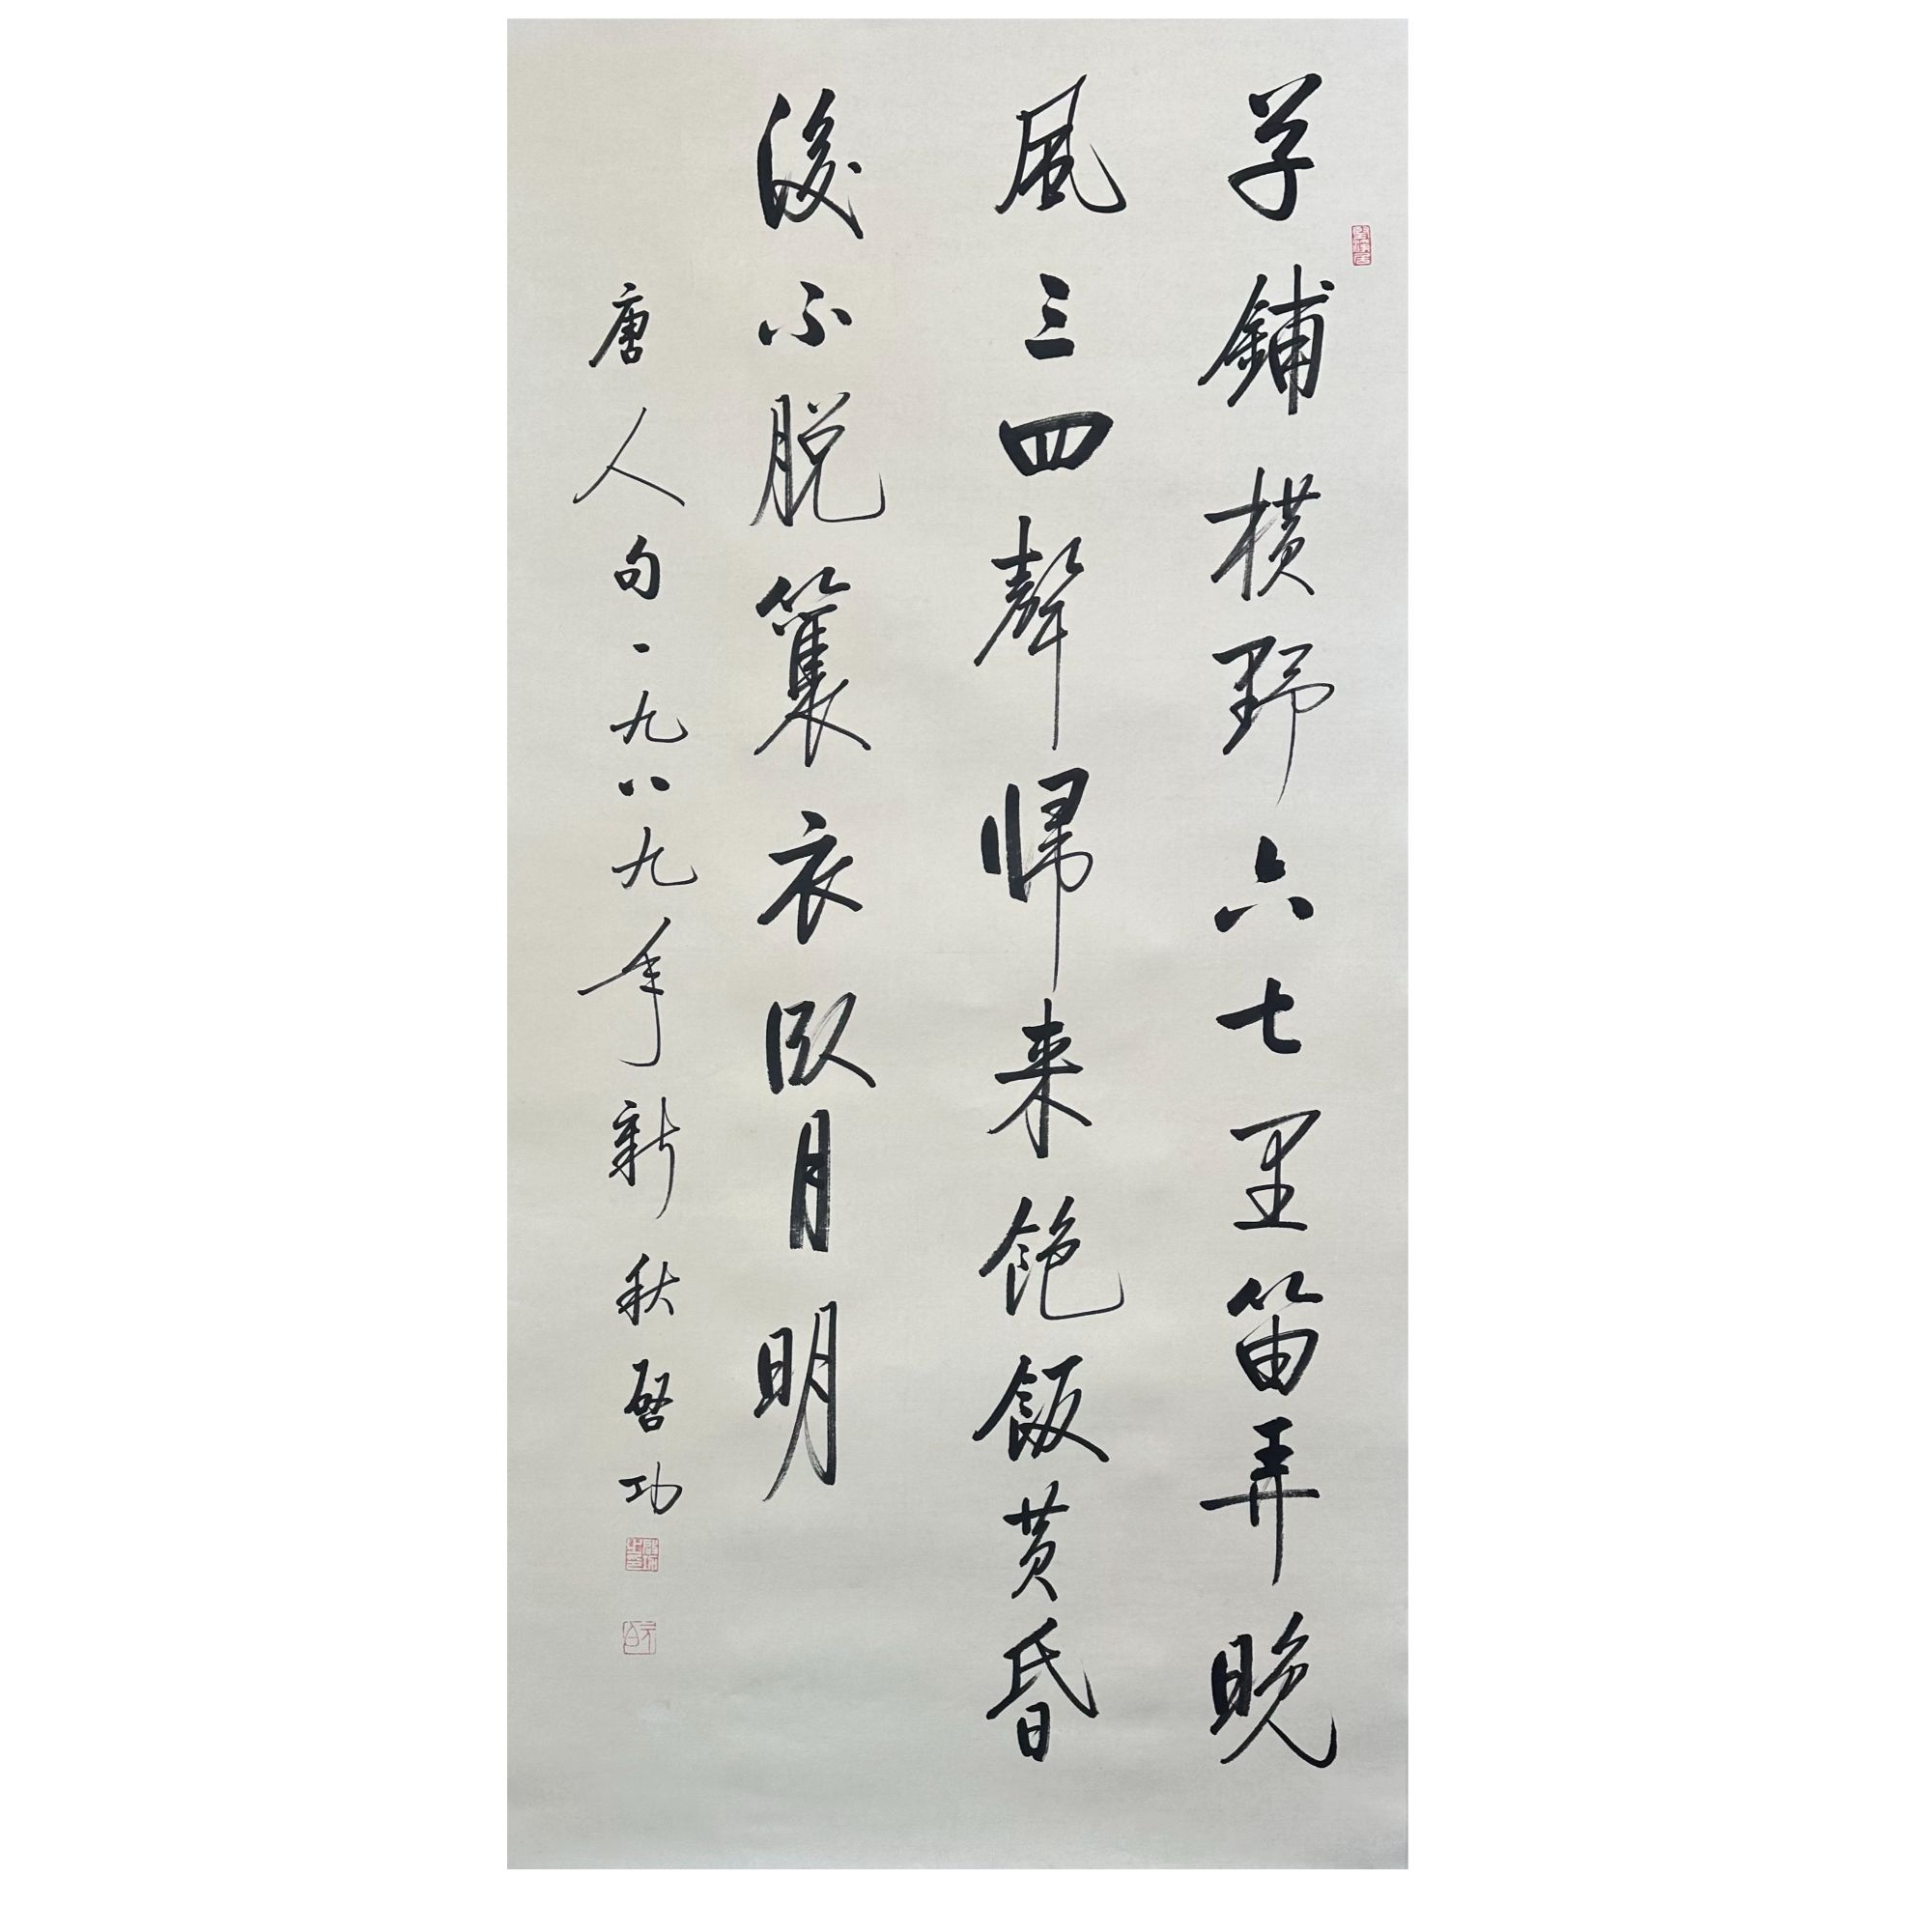 草鋪橫野六七里笛弄晚
風三四聲歸来飽飯黄昏
後不脱簑衣臥月明
唐人句一九八九年新秋啓功